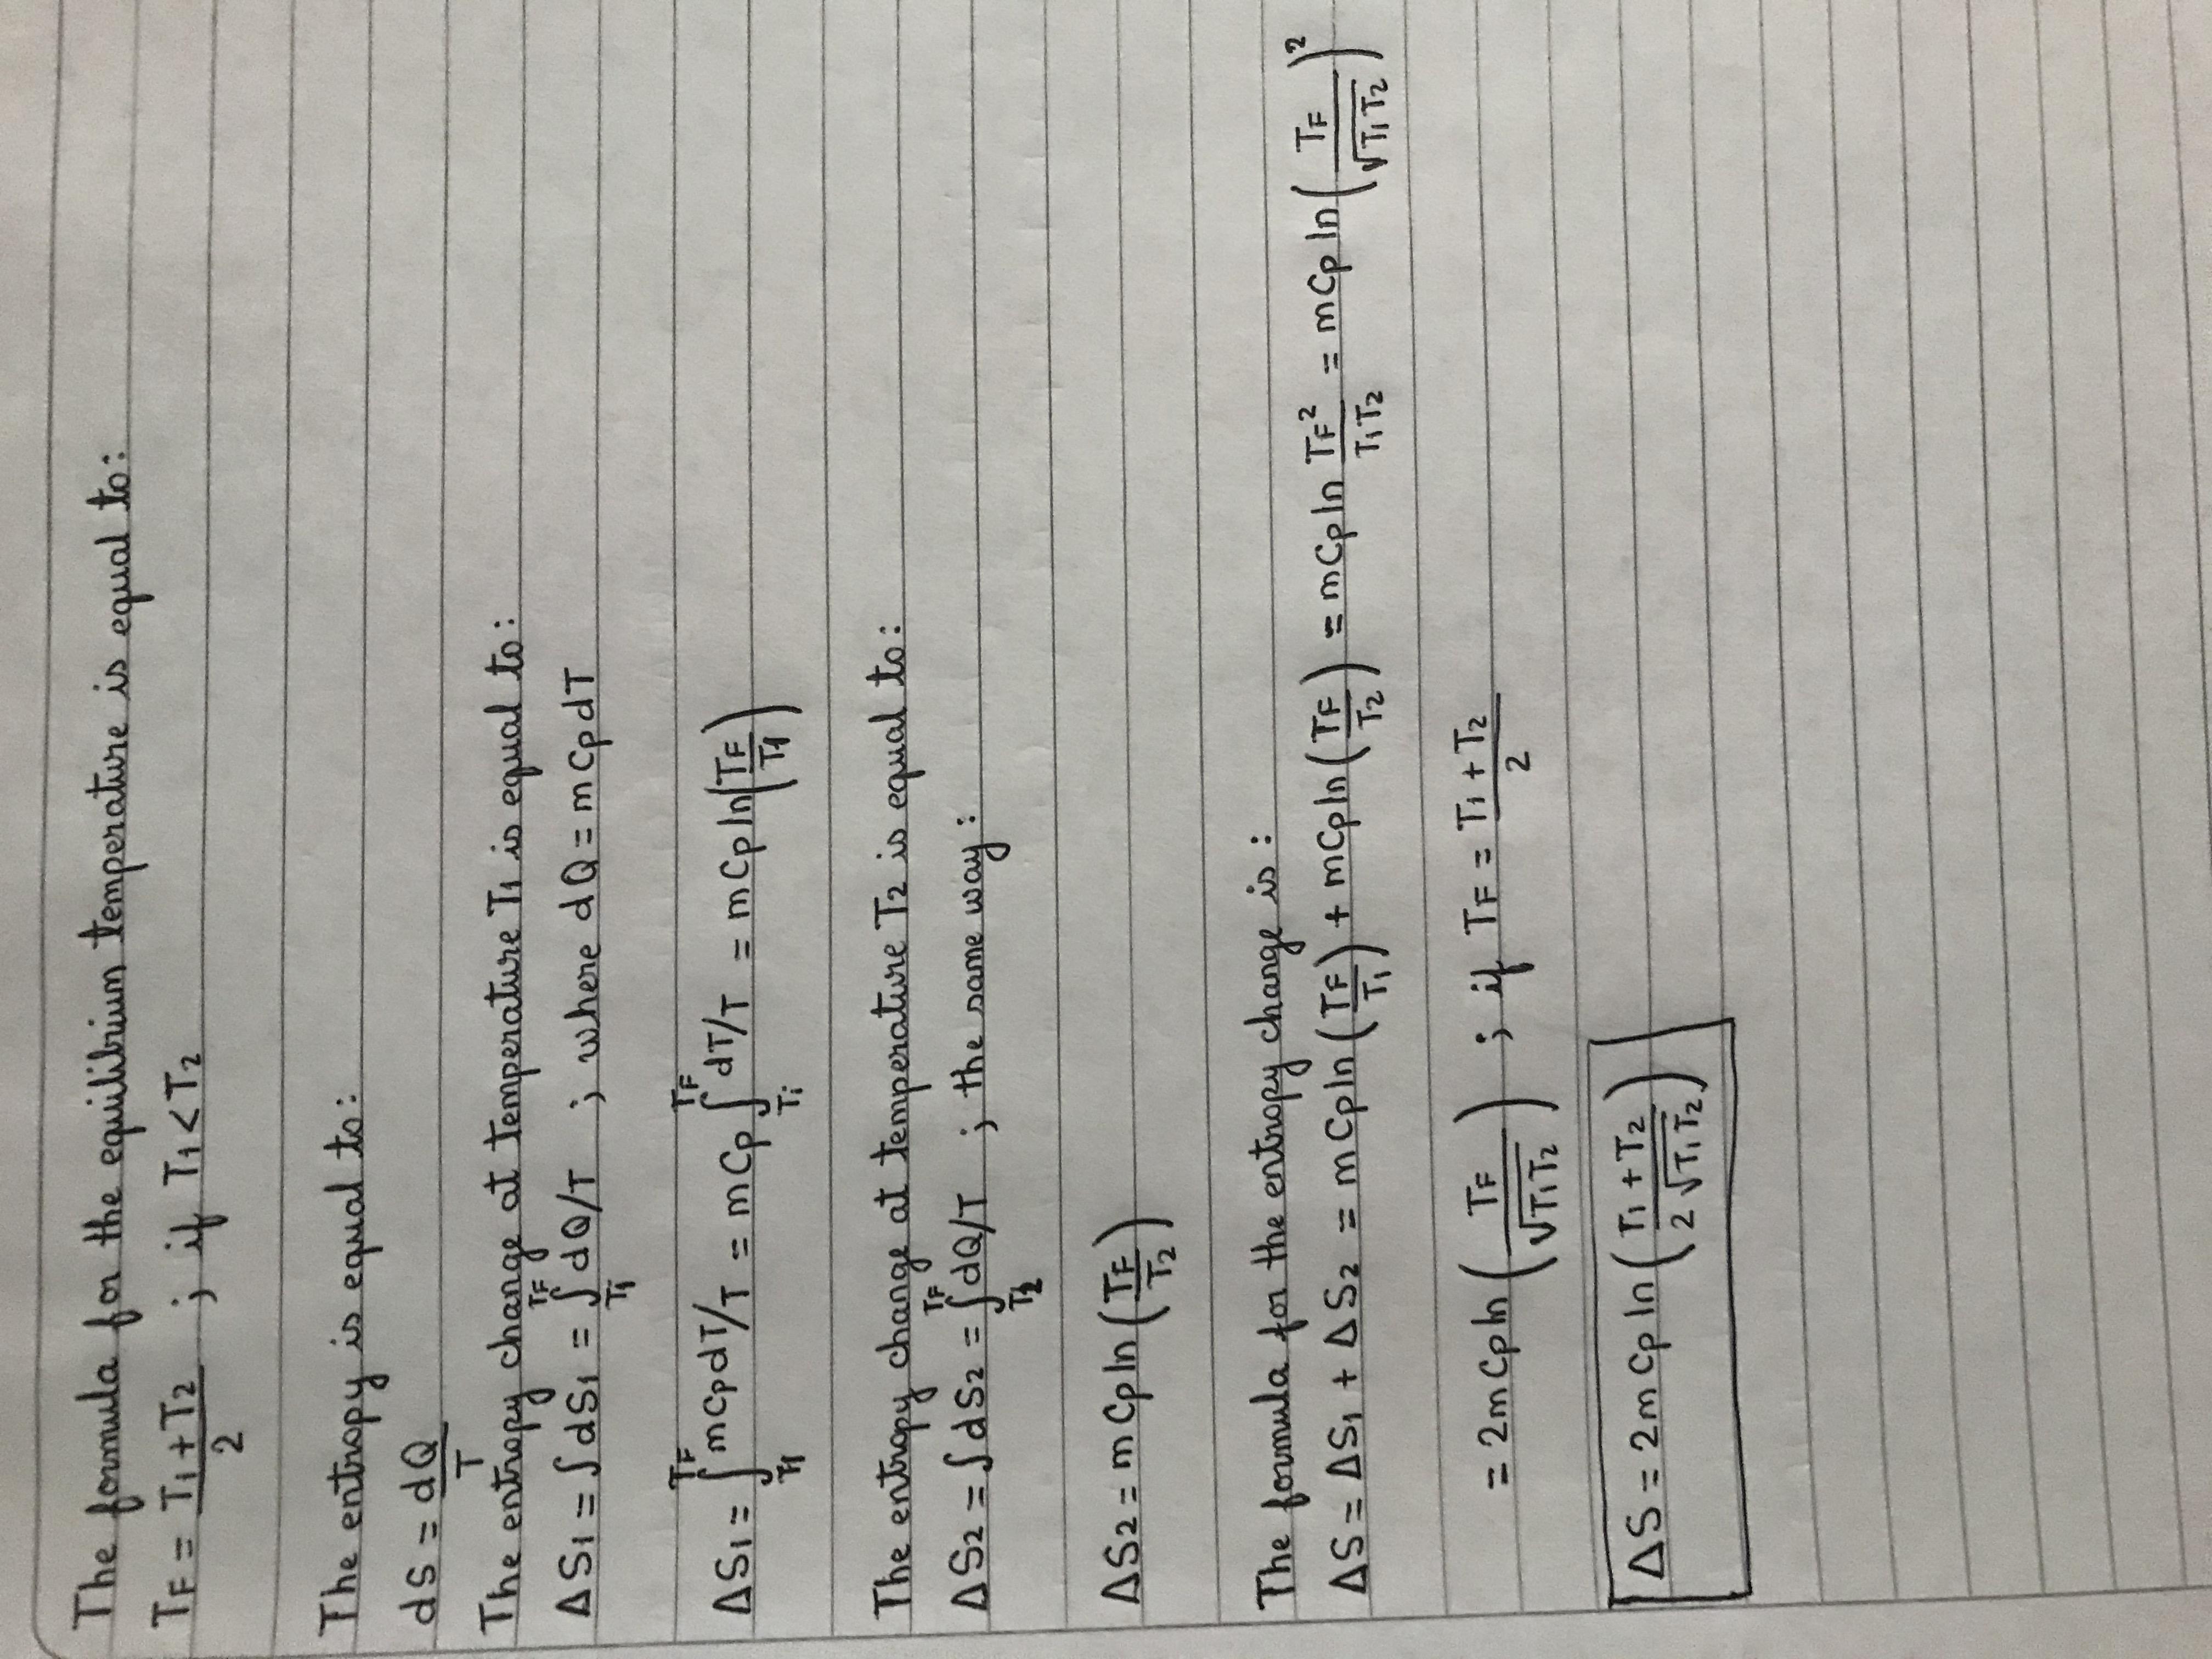 The formula for the equilibrium temperature is equal to:
TF = (T1 + T2)/2 ; if T1 < T2
The entropy is equal to:
dS = dQ/T
The entropy change at temperature T1 is equal to:
ΔS1 = ∫dS1 = ∫_{T1}^{TF} dQ/T ; where dQ = mCpdT
ΔS1 = ∫_{T1}^{TF} mCpdT/T = mCp ∫_{Ti}^{TF} dT/T = mCp ln(TF/T1)
The entropy change at temperature T2 is equal to:
ΔS2 = ∫dS2 = ∫_{T2}^{TF} dQ/T ; the same way:
ΔS2 = mCp ln(TF/T2)
The formula for the entropy change is:
ΔS = ΔS1 + ΔS2 = mCp ln(TF/T1) + mCp ln(TF/T2) = mCp ln TF²/T1T2 = mCp ln(TF/√T1T2)²
= 2mCp ln(TF/√T1T2) ; if TF = (T1 + T2)/2
ΔS = 2mCp ln((T1 + T2)/2√T1T2)